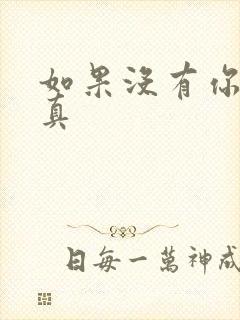 如果沒有你
真
日每一萬神成